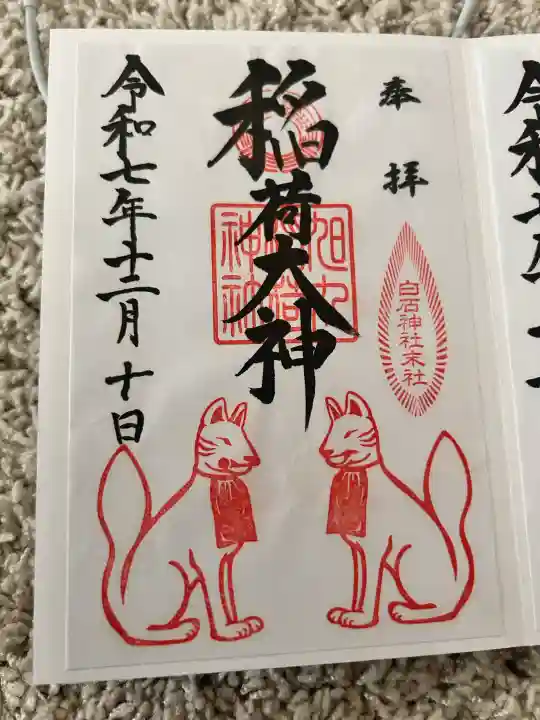 奉拝
白石神社末社
稲荷大神
旭丸
稲荷
神社
令和七年十二月十日